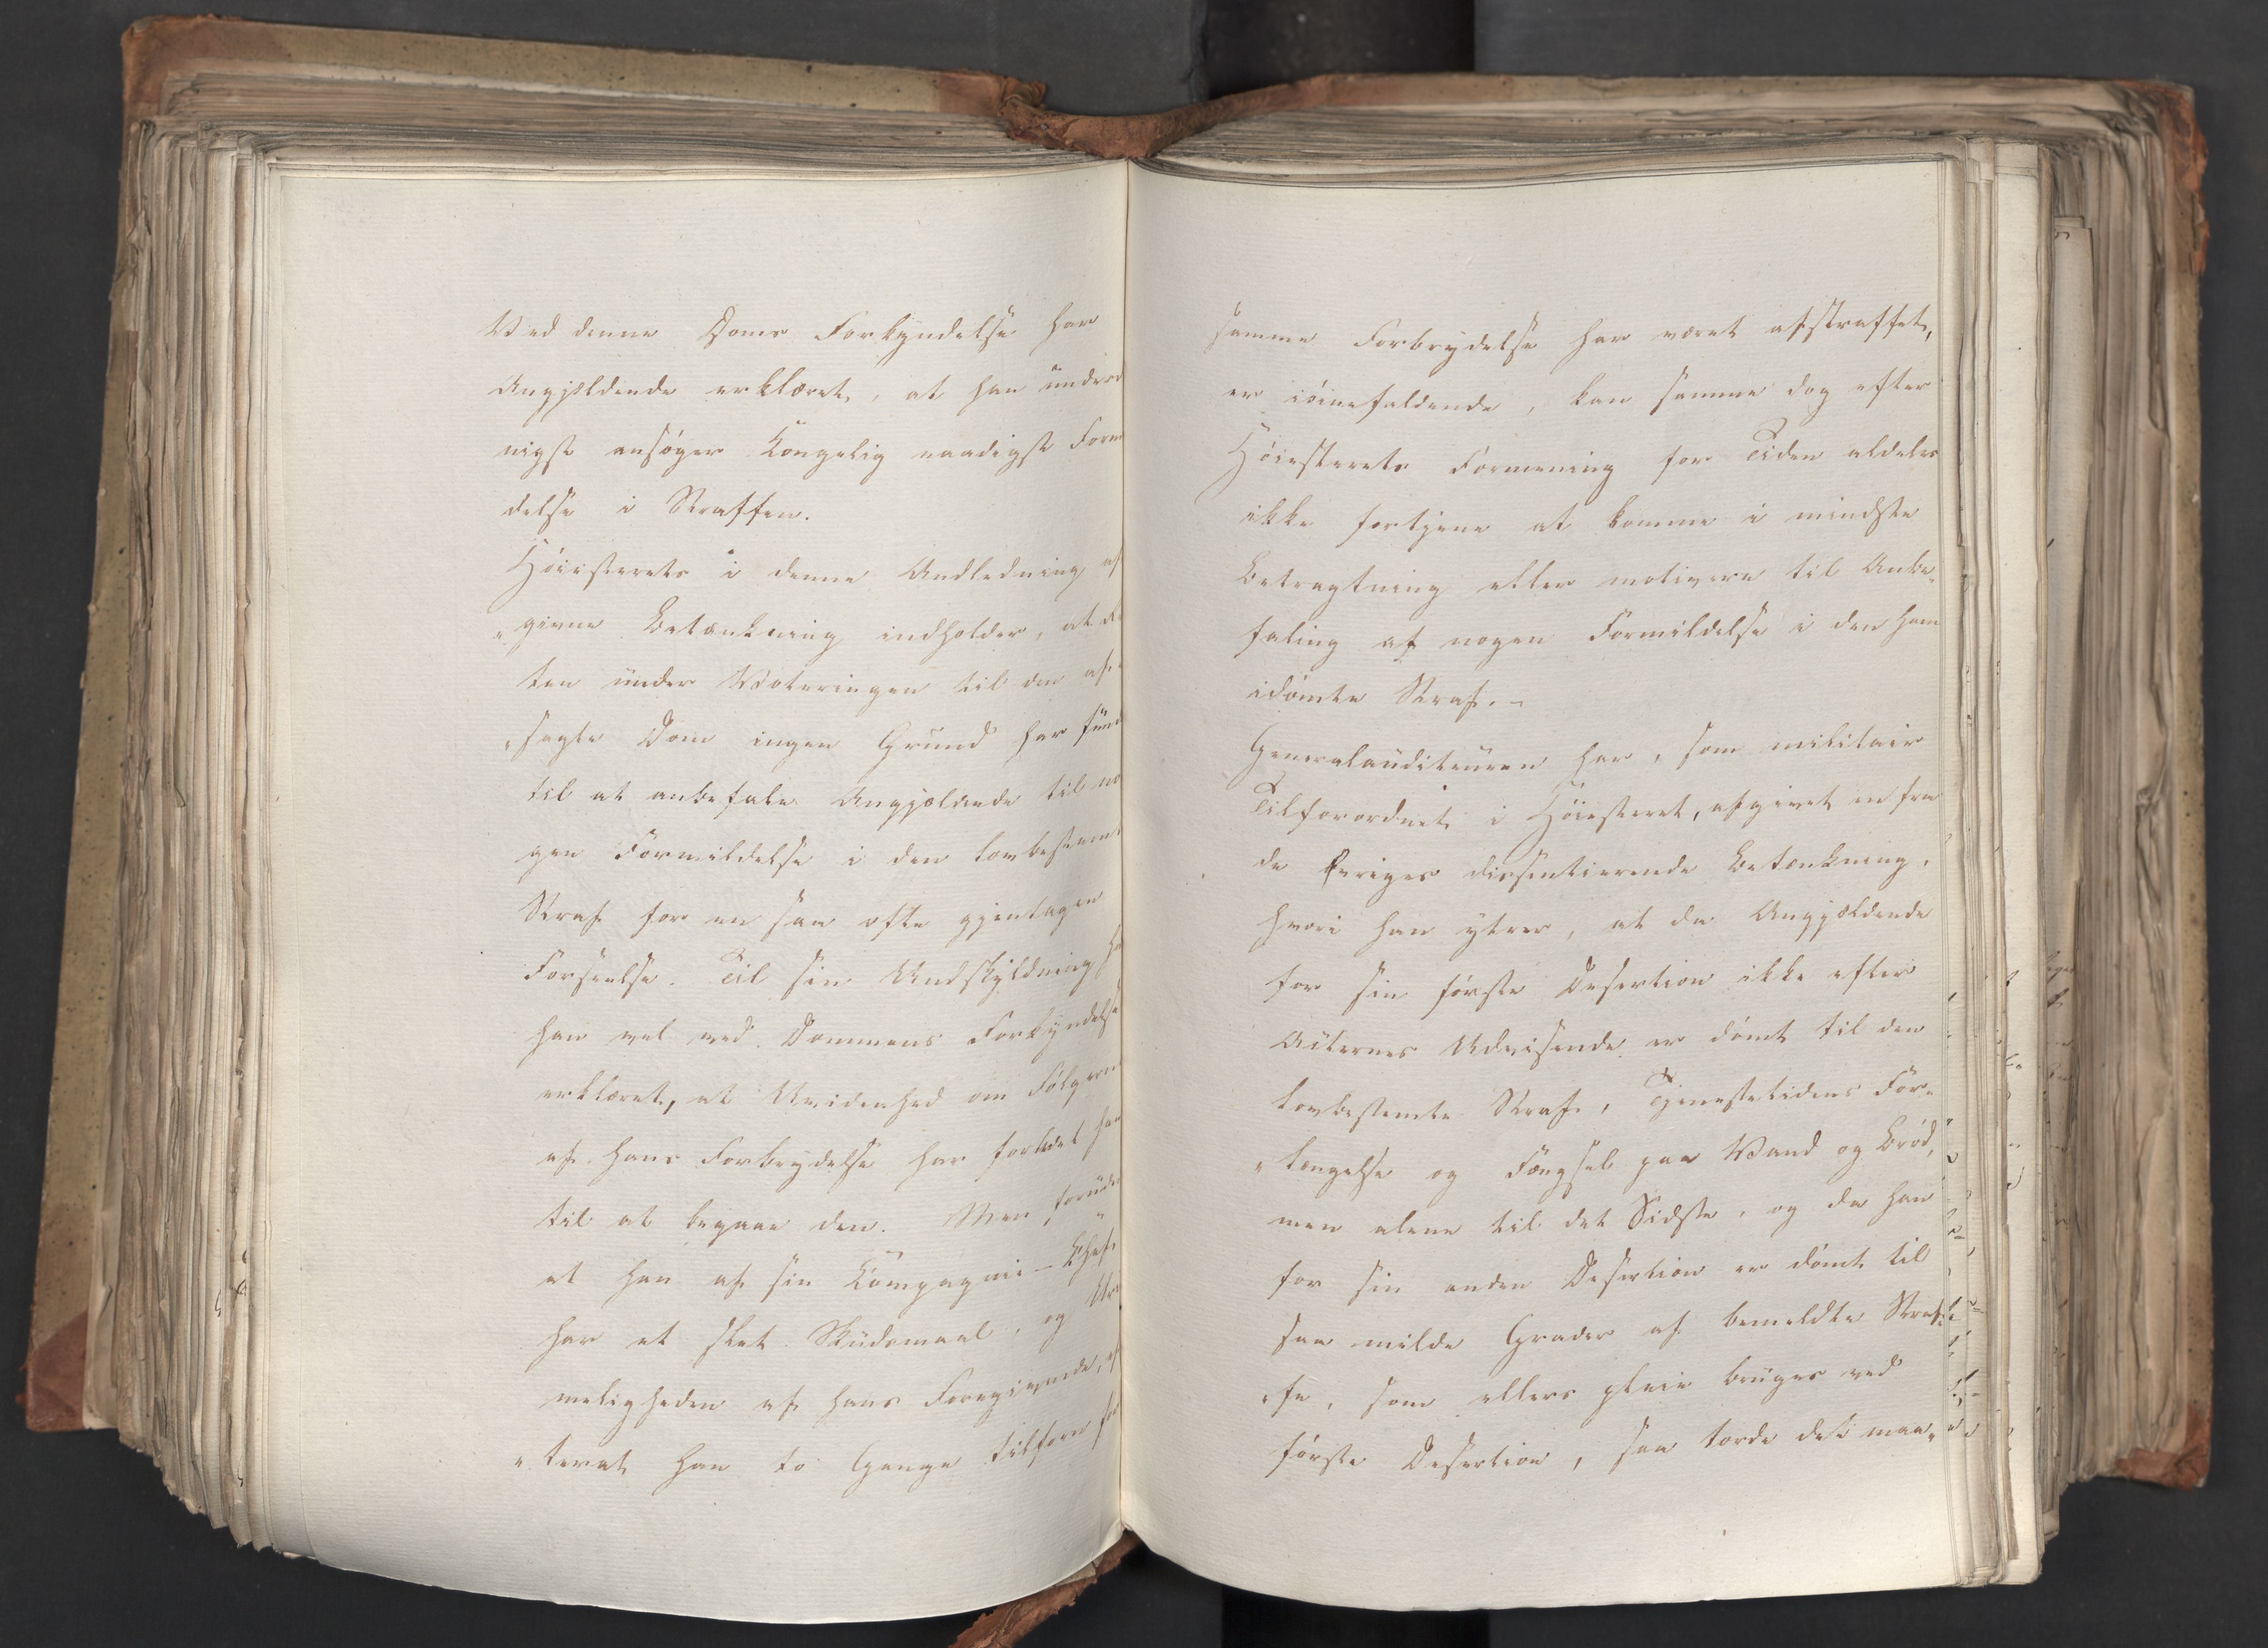 Ved denne Doms Forkyndelse har
Angjældende erklæret, at han underd
nigst ansøger Kongelig naadigst Form
delse i Straffen.
Høiesterets i denne Andledning af
„givne Betænkning indholder, at R
ten under Voteringen til den af„
„sagte Dom ingen Grund har fund
til at anbefale Angjældende til no
gen Formildelse i den lovbestemt
Straf for en saa ofte gjentagen
Forseelse. Til sin Undskyldning ha
han vel ved Dommens Forkyndelse
erklæret, at Uvidenhed om Følgern
af hans Forbrydelse har forledet han
til at begaae den. Men foruden
at han af sin Compagnie-Chef
har et slet Skudsmaal, og Uri
meligheden af hans Foregivende, ef
„terat han to Gange tilforn for
samme Forbrydelse har været afstraffet,
er iøinefaldende, kan samme dog efter
Høiesterets Formening for Tiden aldeles
ikke fortjene at komme i mindste
Betragtning eller motivere til Anbe„
faling af nogen Formildelse i den ham
idømte Straf. –
Generalauditeuren har, som militair
Tilforordnet i Høiesteret, afgivet en fra
de Øvriges dissentierende Betænkning,
hvori han yttrer, at da Angjældende
for sin første Desertion ikke efter
Acternes Udvisende er dømt til den
lovbestemte Straf, Tjenestetidens For„
„længelse og Fængsel paa Vand og Brød,
men alene til det Sidste, og da han
for sin anden Desertion er dømt til
saa milde Grader af bemeldte Straf„
„fe, som ellers pleie bruges ved
første Desertion, saa torde det maa„